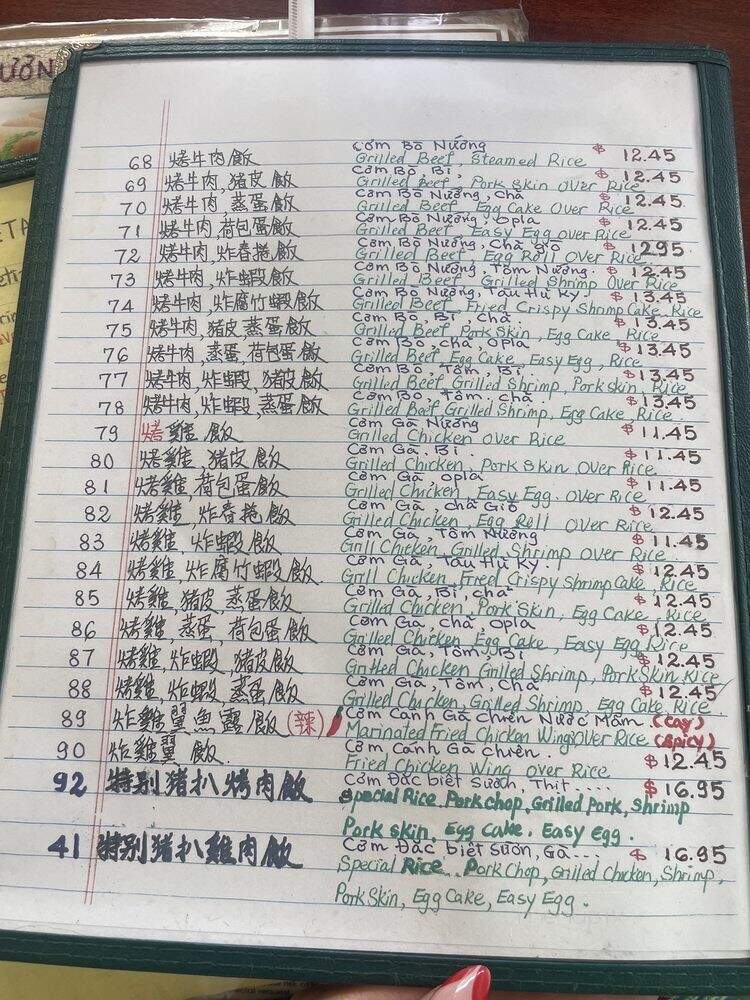 ƯỚN
68 烤牛肉飯 Cơm Bò Nướng $ 12.45
Grilled Beef, Steamed Rice
69 烤牛肉,豬皮飯 Cơm Bò, Bì, $ 12.45
Grilled Beef, Pork Skin Over Rice
70 烤牛肉,蒸蛋飯 Cơm Bò Nướng, chả $ 12.45
Grilled Beef, Egg Cake Over Rice
71 烤牛肉,荷包蛋飯 Cơm Bò Nướng, opla $ 12.45
Grilled Beef, Easy Egg over Rice
72 烤牛肉,炸春捲飯 Cơm Bò Nướng, Chả Giò $ 12.95
Grilled Beef, Egg Roll Over Rice
73 烤牛肉,炸蝦飯 Cơm Bò Nướng, Tôm Nướng. $ 12.45
Grilled Beef, Grilled Shrimp Over Rice
74 烤牛肉,炸腐竹蝦飯 Cơm Bò Nướng, Tàu Hủ Ky. $ 13.45
Grilled Beef, Fried Crispy Shrimp Cake, Rice
75 烤牛肉,豬皮,蒸蛋飯 Cơm Bò, Bì, chả. $ 13.45
Grilled Beef, Pork Skin, Egg Cake, Rice
76 烤牛肉,蒸蛋,荷包蛋飯 Cơm Bò, chả, opla $ 13.45
Grilled Beef, Egg Cake, Easy Egg, Rice
77 烤牛肉,炸蝦,豬皮飯 Cơm Bò, Tôm, Bì. $ 13.45
Grilled Beef, Grilled Shrimp, Pork skin, Rice
78 烤牛肉,炸蝦,蒸蛋飯 Cơm Bò, Tôm, chả. $ 13.45
Grilled Beef Grilled Shrimp, Egg Cake, Rice
79 烤雞飯 Cơm Gà Nướng $ 11.45
Grilled Chicken Over Rice
80 烤雞,豬皮飯 Cơm Gà. Bì. $ 11.45
Grilled Chicken, Pork Skin Over Rice
81 烤雞,荷包蛋飯 Cơm Gà, opla $ 11.45
Grilled Chicken, Easy Egg. Over Rice
82 烤雞,炸春捲飯 Cơm Gà, chả Giò $ 12.45
Grilled Chicken, Egg Roll Over Rice
83 烤雞,炸蝦飯 Cơm Gà, Tôm Nướng $ 11.45
Grill Chicken, Grilled Shrimp Over Rice
84 烤雞,炸腐竹蝦飯. Cơm Gà, Tàu Hủ Ky. $ 12.45
Grill Chicken, Fried Crispy Shrimp Cake, Rice
85 烤雞,豬皮,蒸蛋飯 Cơm Gà, Bì, chả $ 12.45
Grilled Chicken, Pork Skin, Egg Cake, Rice
86 烤雞,蒸蛋,荷包蛋飯 Cơm Gà, chả, Opla $ 12.45
Grilled Chicken, Egg Cake, Easy Egg Rice
87 烤雞,炸蝦,豬皮飯 Cơm Gà, Tôm, Bì $ 12.45
Grilled Chicken, Grilled Shrimp, Pork Skin Rice
88 烤雞,炸蝦,蒸蛋飯 Cơm Gà, Tôm, chả $ 12.45
Grilled Chicken, Grilled Shrimp, Egg Cake Rice
89 炸雞翼魚露飯(辣) Cơm Cánh Gà chiên Nước Mắm (cay)
Marinated Fried Chicken Wings Over Rice (spicy)
90 炸雞翼飯. Cơm Cánh Gà chiên. $ 12.45
Fried Chicken Wing Over Rice
92 特别豬扒烤肉飯 Cơm Đặc biệt Sườn, Thịt.... $ 16.95
Special Rice, Pork chop, Grilled Pork, Shrimp
Pork skin, Egg Cake. Easy Egg.
41 特别豬扒雞肉飯 Cơm Đặc biệt sườn, Gà... $ 16.95
Special Rice.. Pork Chop, Grilled Chicken, Shrimp,
Pork Skin, Egg Cake, Easy Egg.